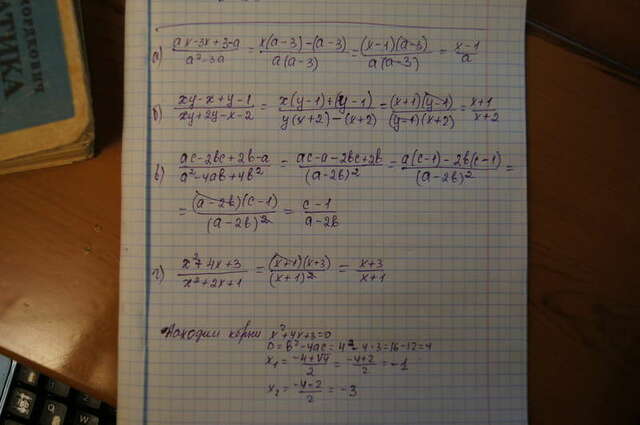 МОРДКОВИЧ
АТИКА
а) (ax-3x+3-a)/(a²-3a) = (x(a-3)-(a-3))/(a(a-3)) = ((x-1)(a-3))/(a(a-3)) = (x-1)/a
б) (xy-x+y-1)/(xy+2y-x-2) = (x(y-1)+(y-1))/(y(x+2)-(x+2)) = ((x+1)(y-1))/((y-1)(x+2)) = (x+1)/(x+2)
в) (ac-2bc+2b-a)/(a²-4ab+4b²) = (ac-a-2bc+2b)/((a-2b)²) = (a(c-1)-2b(c-1))/((a-2b)²) =
= ((a-2b)(c-1))/((a-2b)²) = (c-1)/(a-2b)
г) (x²+4x+3)/(x²+2x+1) = ((x+1)(x+3))/((x+1)²) = (x+3)/(x+1)
Находим корни x²+4x+3=0
D=b²-4ac=4²-4·3=16-12=4
x₁=(-4+√4)/2=(-4+2)/2=-1
x₂=(-4-2)/2=-3